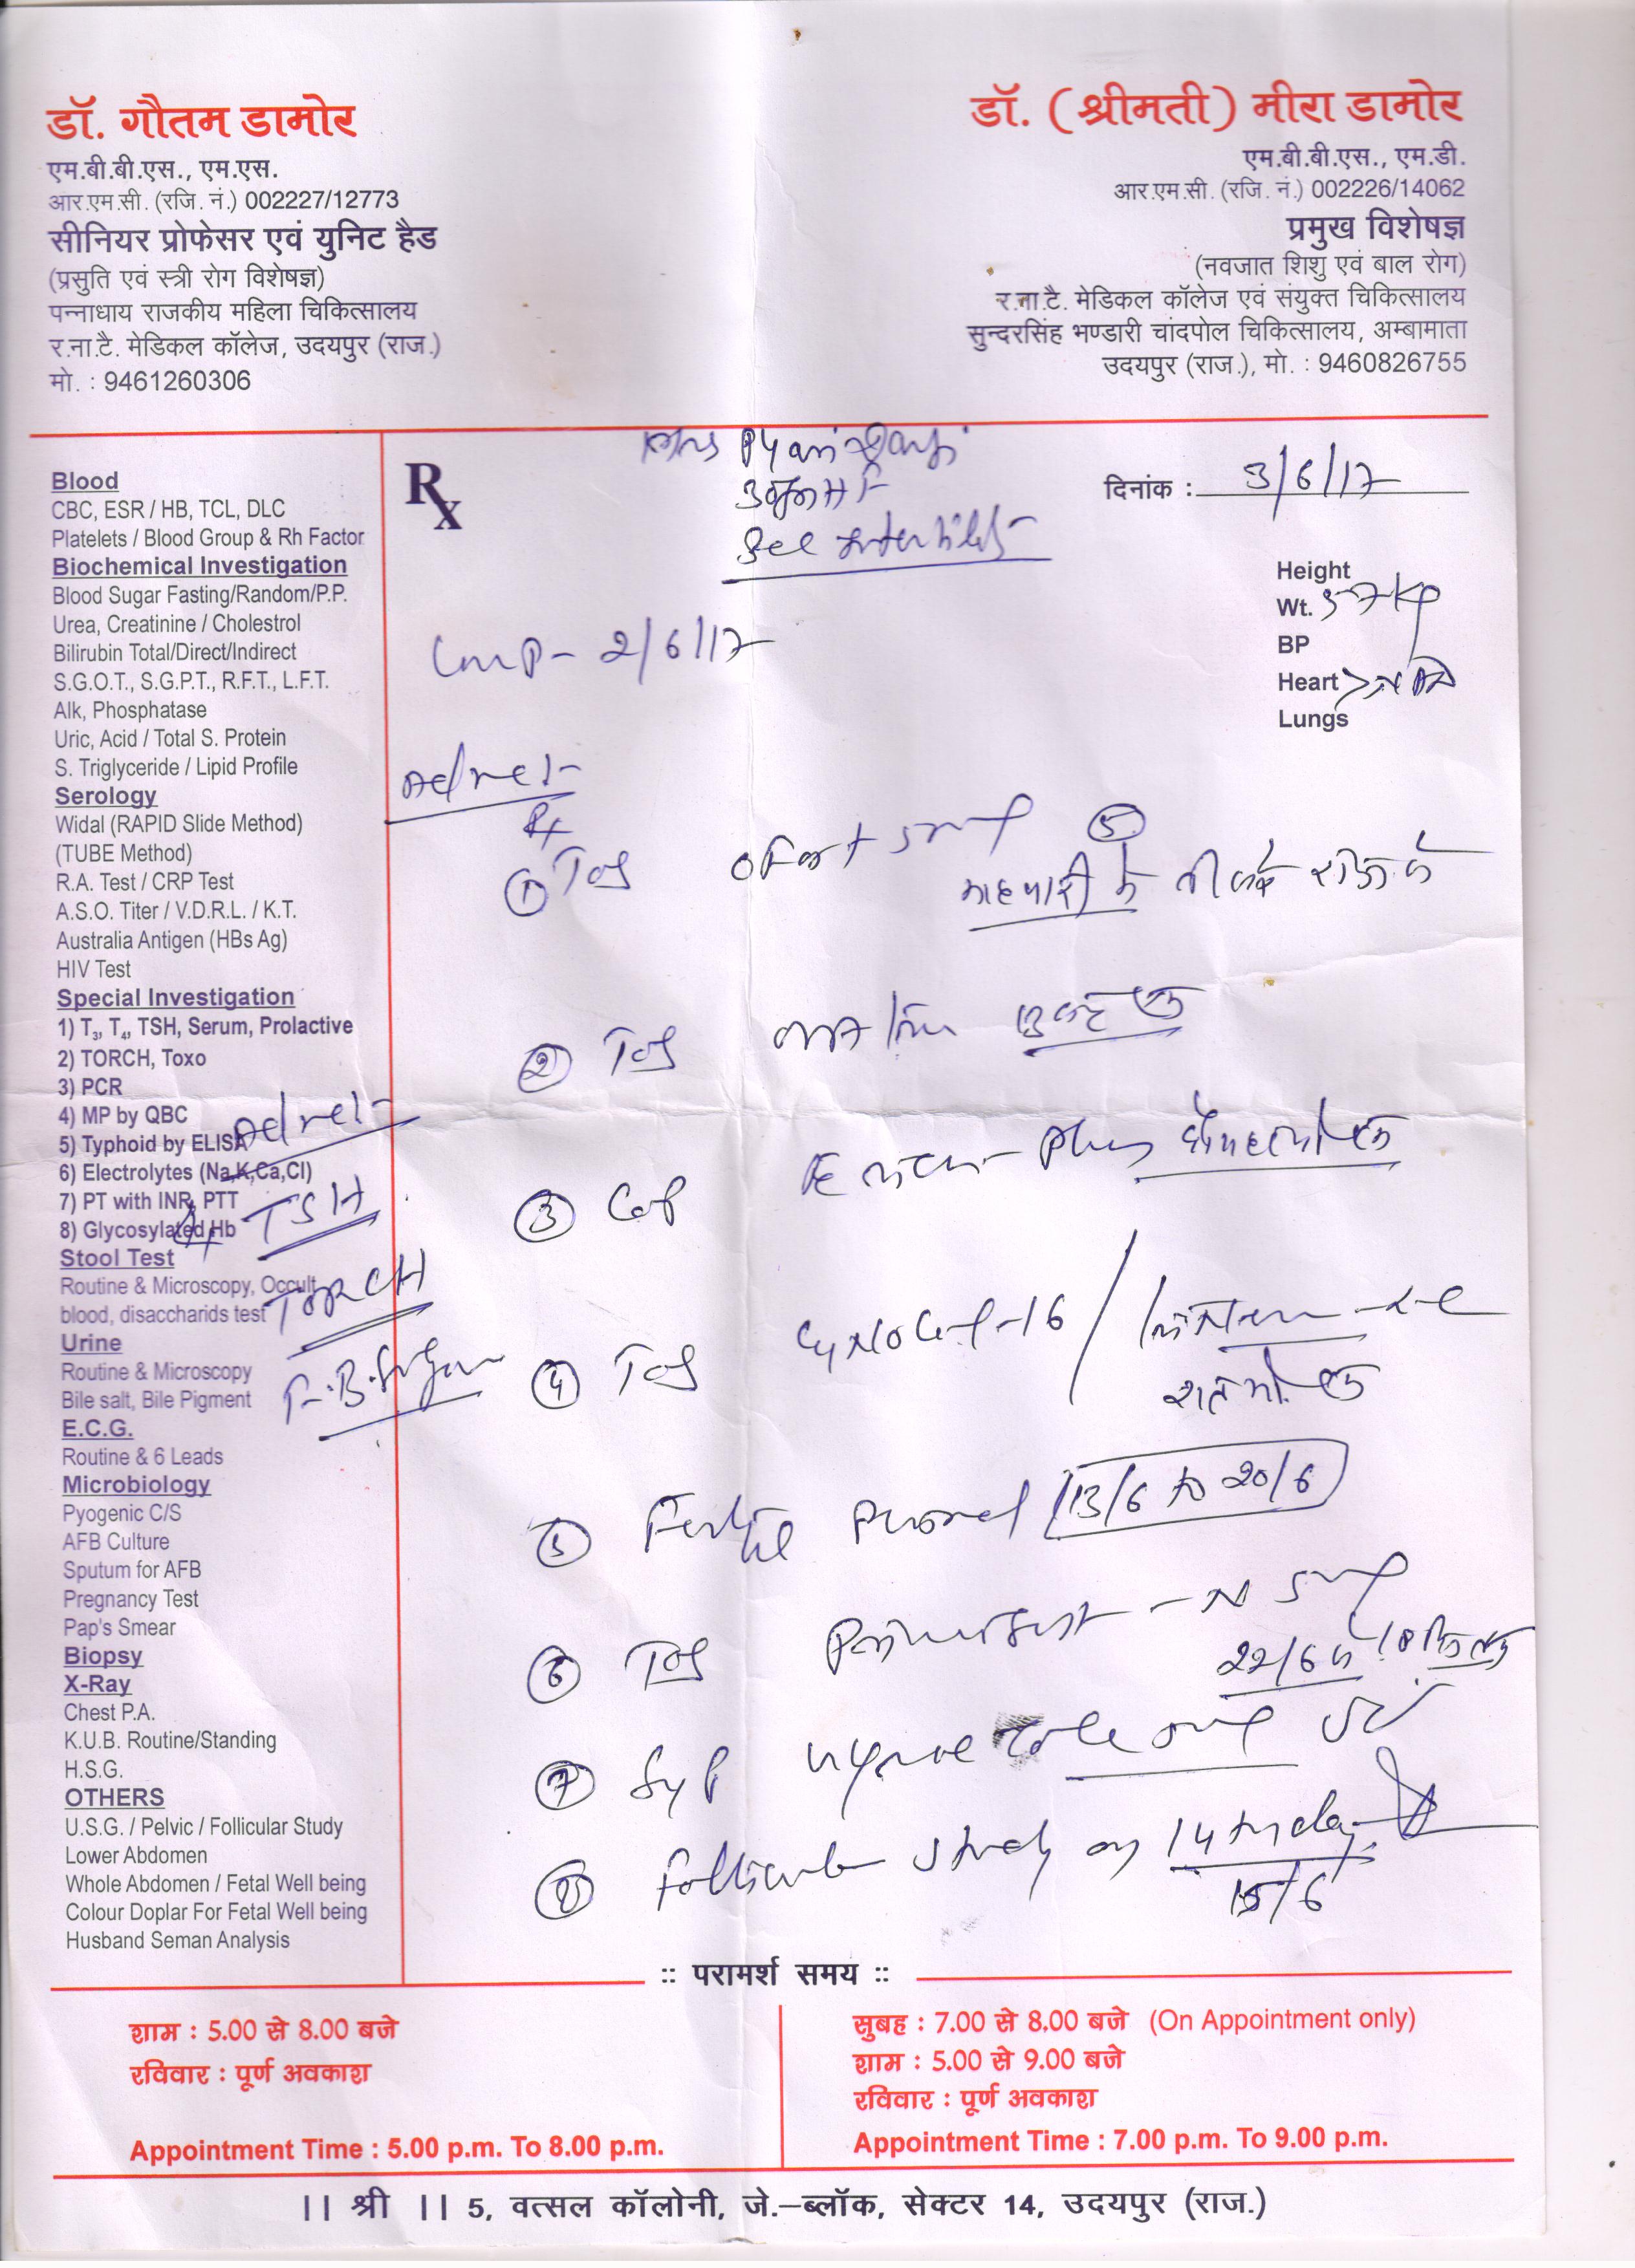 डॉ. गौतम डामोर
एम.बी.बी.एस., एम.एस.
आर.एम.सी. (रजि. नं.) 002227/12773
सीनियर प्रोफेसर एवं युनिट हैड
(प्रसुति एवं स्त्री रोग विशेषज्ञ)
पन्नाधाय राजकीय महिला चिकित्सालय
र.ना.टै. मेडिकल कॉलेज, उदयपुर (राज.)
मो. : 9461260306
डॉ. (श्रीमती) मीरा डामोर
एम.बी.बी.एस., एम.डी.
आर.एम.सी. (रजि. नं.) 002226/14062
प्रमुख विशेषज्ञ
(नवजात शिशु एवं बाल रोग)
र.ना.टै. मेडिकल कॉलेज एवं संयुक्त चिकित्सालय
सुन्दरसिंह भण्डारी चांदपोल चिकित्सालय, अम्बामाता
उदयपुर (राज.), मो. : 9460826755
Blood
CBC, ESR / HB, TCL, DLC
Platelets / Blood Group & Rh Factor
Biochemical Investigation
Blood Sugar Fasting/Random/P.P.
Urea, Creatinine / Cholestrol
Bilirubin Total/Direct/Indirect
S.G.O.T., S.G.P.T., R.F.T., L.F.T.
Alk, Phosphatase
Uric, Acid / Total S. Protein
S. Triglyceride / Lipid Profile
Serology
Widal (RAPID Slide Method)
(TUBE Method)
R.A. Test / CRP Test
A.S.O. Titer / V.D.R.L. / K.T.
Australia Antigen (HBs Ag)
HIV Test
Special Investigation
1) T3, T4, TSH, Serum, Prolactive
2) TORCH, Toxo
3) PCR
4) MP by QBC
5) Typhoid by ELISA
6) Electrolytes (Na,K,Ca,Cl)
7) PT with INR, PTT
8) Glycosylated Hb
Stool Test
Routine & Microscopy, Occult
blood, disaccharids test
Urine
Routine & Microscopy
Bile salt, Bile Pigment
E.C.G.
Routine & 6 Leads
Microbiology
Pyogenic C/S
AFB Culture
Sputum for AFB
Pregnancy Test
Pap's Smear
Biopsy
X-Ray
Chest P.A.
K.U.B. Routine/Standing
H.S.G.
OTHERS
U.S.G. / Pelvic / Follicular Study
Lower Abdomen
Whole Abdomen / Fetal Well being
Colour Doplar For Fetal Well being
Husband Seman Analysis
TSH
TORCH
F.B.Sugar
Rx
दिनांक : 3/6/17
Height
Wt. 57 kg
BP
Heart
Lungs
LMP - 2/6/17
Rx
① Tab
माहवारी के
② Tab
③ Cap Plus
④ Tab
⑤ Fertyl 13/6 to 20/6
⑥ Tab 22/6
⑦ Syp
⑧ Follicular study on 14th day
15/6
:: परामर्श समय ::
शाम : 5.00 से 8.00 बजे
रविवार : पूर्ण अवकाश
Appointment Time : 5.00 p.m. To 8.00 p.m.
सुबह : 7.00 से 8.00 बजे (On Appointment only)
शाम : 5.00 से 9.00 बजे
रविवार : पूर्ण अवकाश
Appointment Time : 7.00 p.m. To 9.00 p.m.
|| श्री || 5, वत्सल कॉलोनी, जे.–ब्लॉक, सेक्टर 14, उदयपुर (राज.)